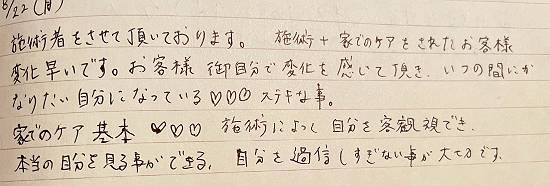 8/22(月)
施術者をさせて頂いております。 施術+家でのケアをされたお客様
変化早いです。お客様 御自分で変化を感じて頂き、いつの間にか
なりたい自分になっている♡♡♡ ステキな事。
家でのケア 基本 ♡♡♡ 施術によって 自分を客観視でき、
本当の自分を見る事ができる。 自分を過信しすぎない事が大切です。